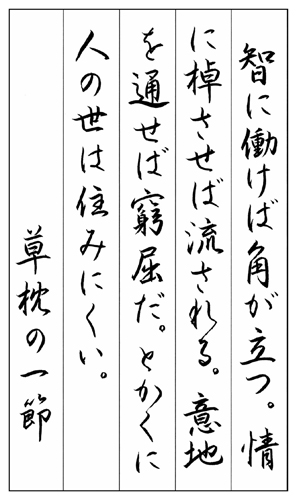 智に働けば角が立つ。情
に棹させば流される。意地
を通せば窮屈だ。とかくに
人の世は住みにくい。
草枕の一節